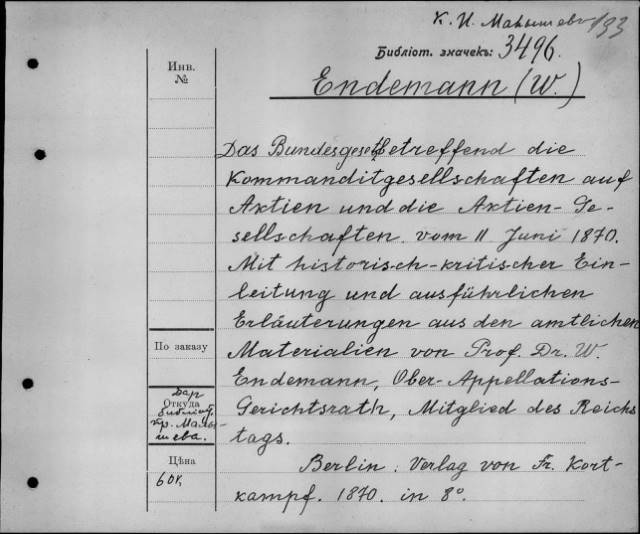 К. И. Малышева 193
Библіот. значекъ: 3496.
Endemann (W.)
Инв.
№
Das Bundesgesetz betreffend die
Kommanditgesellschaften auf
Aktien und die Aktien-Ge-
sellschaften. vom 11 Juni 1870.
Mit historisch-kritischer Ein-
leitung und ausführlichen
Erläuterungen aus den amtlichen
Materialien von Prof. Dr. W.
Endemann, Ober-Appellations-
Gerichtsrath, Mitglied des Reichs
tags.
Berlin. Verlag von Fr. Kort-
kampf. 1870. in 8º.
По заказу
Откуда
Дар
библіот.
пр. Малы-
шева.
Цѣна
60к.